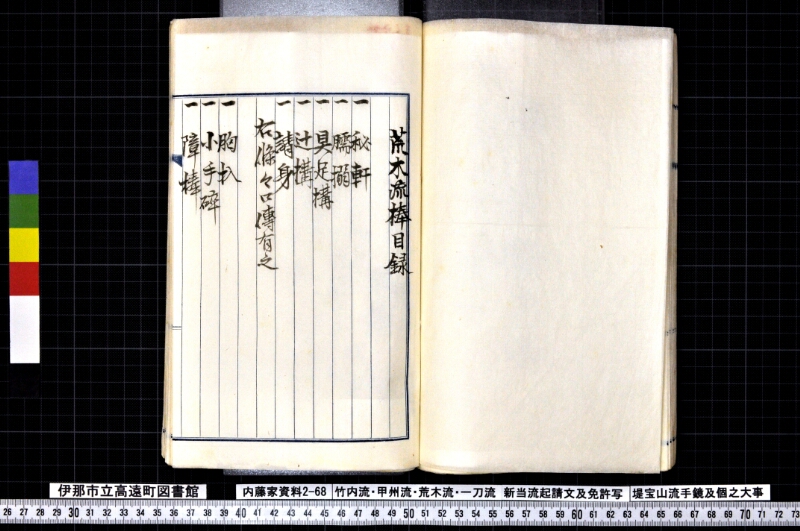 荒木流棒目録
一 秘軒
一
一 具足構
一 辻構
一 請身
右條々口傳有之
一 胸
一 小手砕
一 障棒
伊那市立高遠町図書館
内藤家資料2-68
竹内流・甲州流・荒木流・一刀流 新当流起請文及免許写
堤宝山流手鏡及個之大事
26 27 28 29 30 31 32 33 34 35 36 37 38 39 40 41 42 43 44 45 46 47 48 49 50 51 52 53 54 55 56 57 58 59 60 61 62 63 64 65 66 67 68 69 70 71 72 73